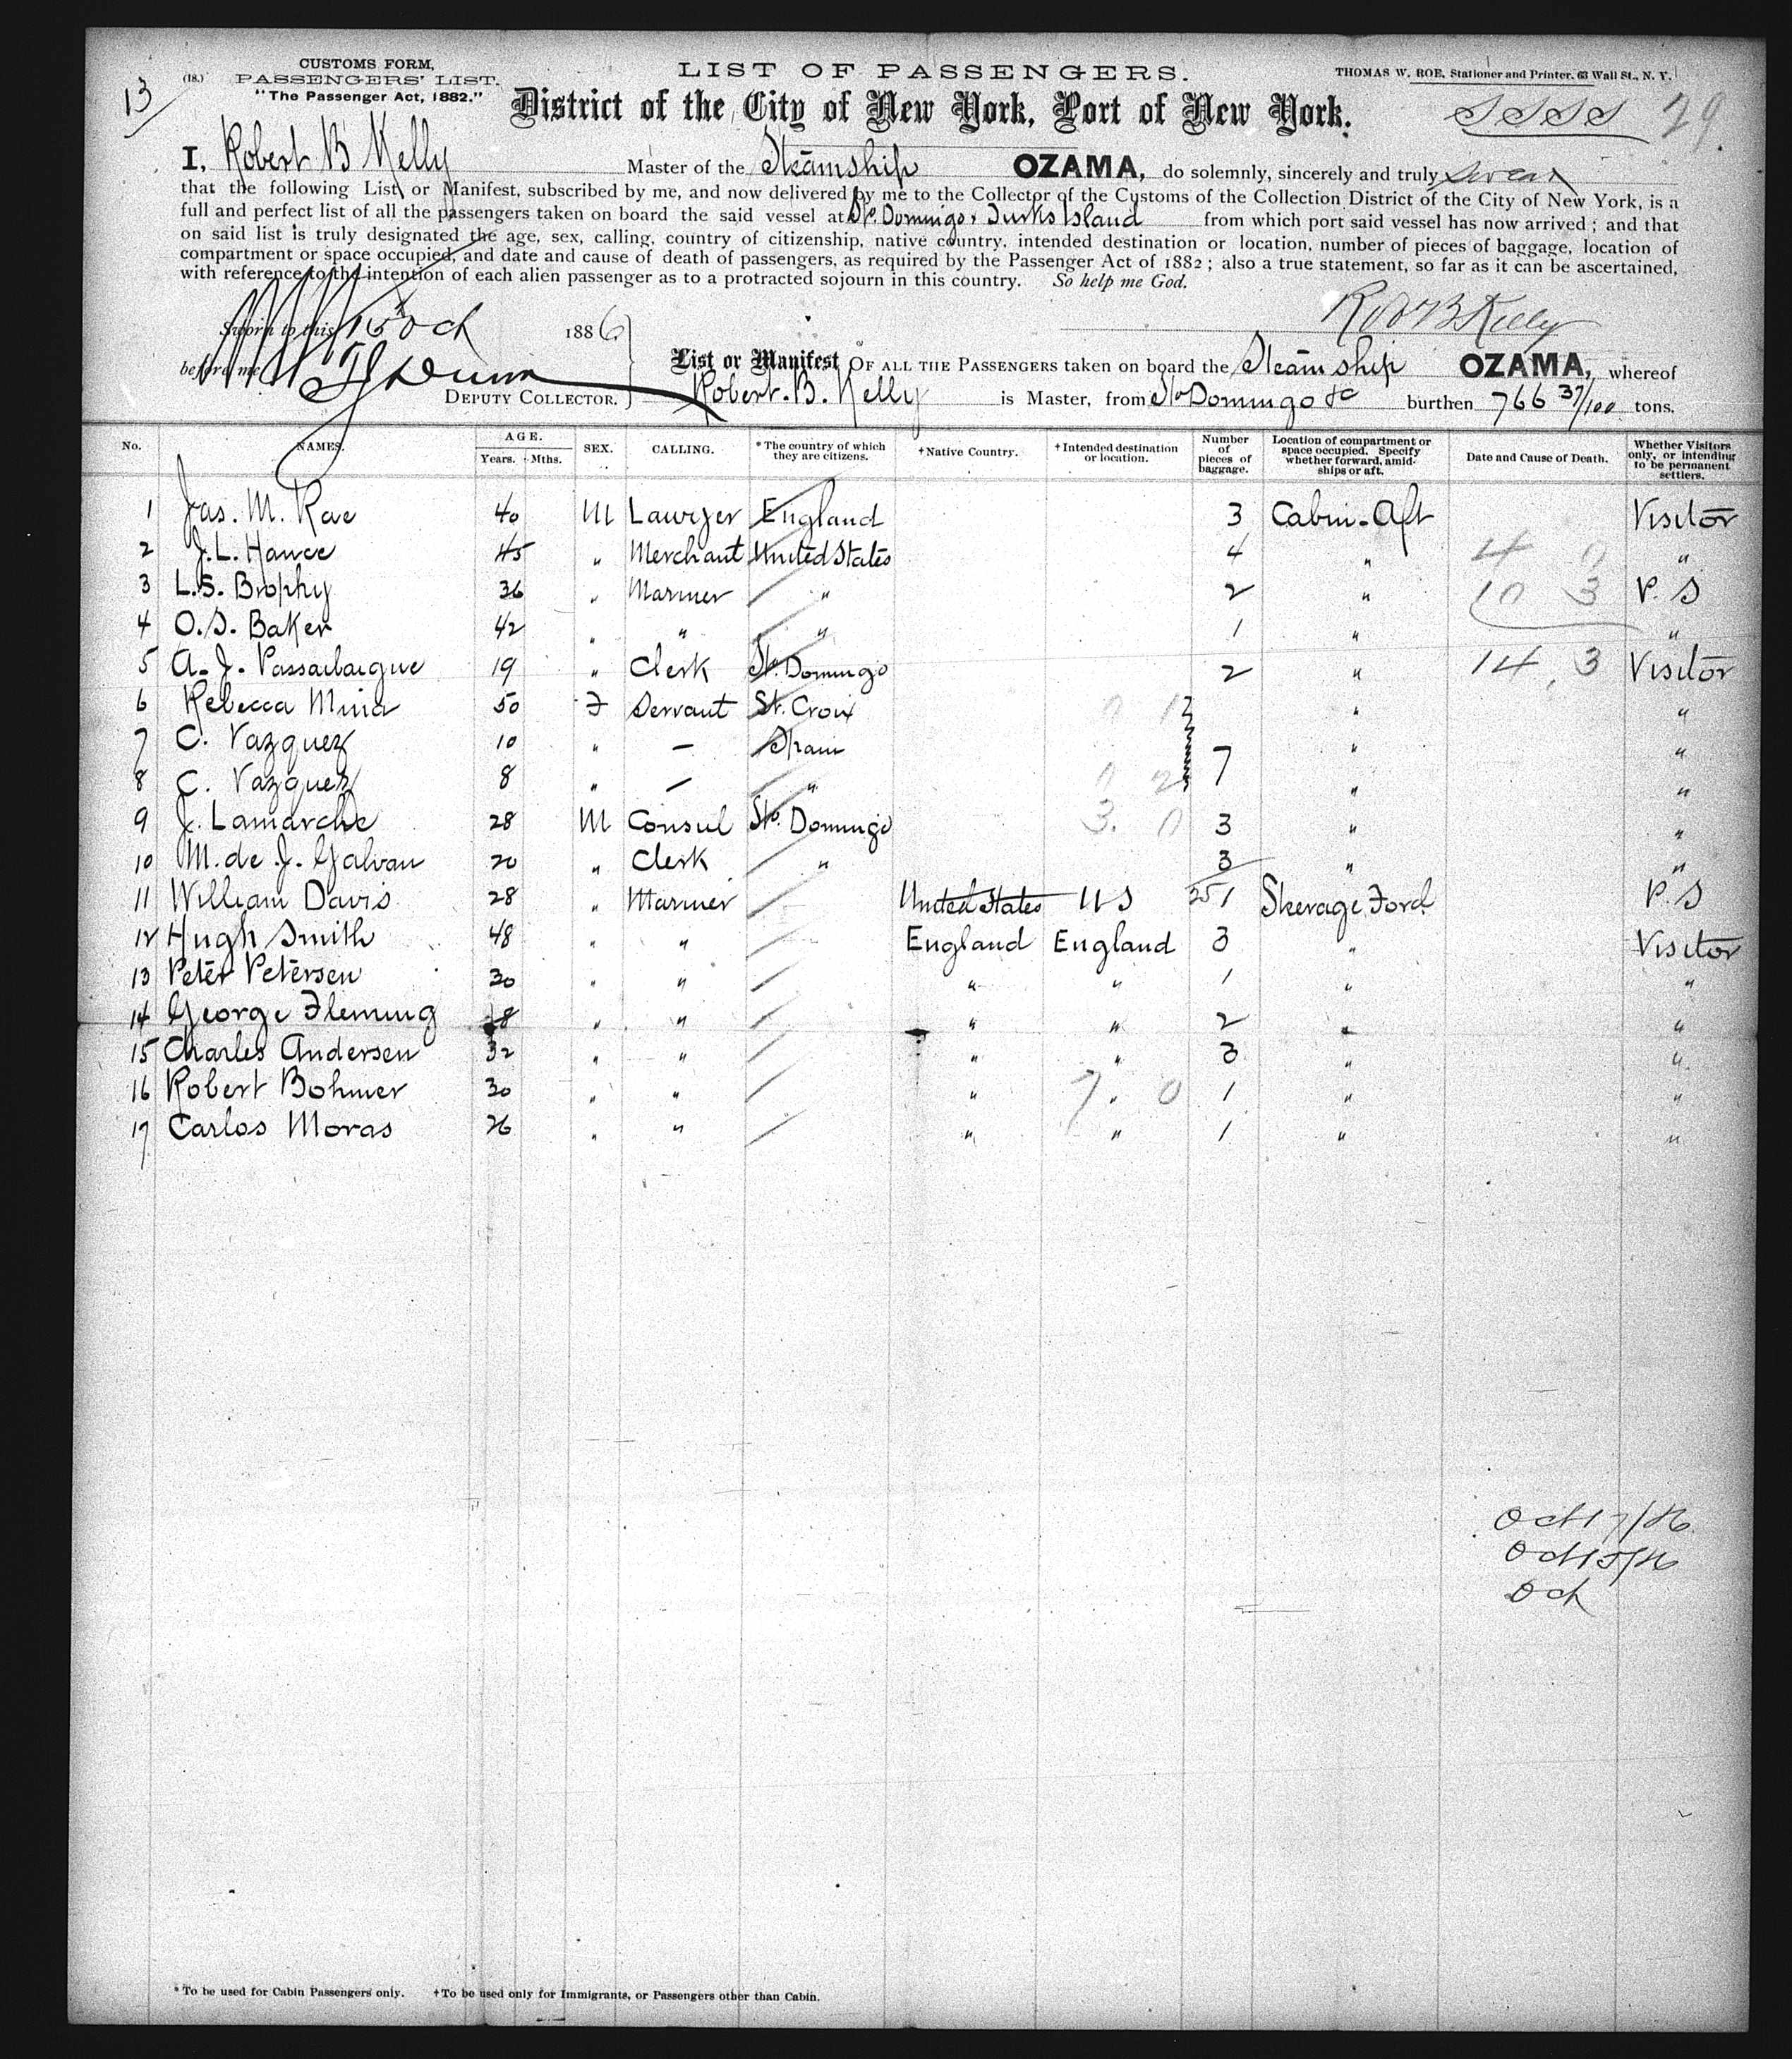 13
(18.)
CUSTOMS FORM,
PASSENGERS' LIST.
"The Passenger Act, 1882."
LIST OF PASSENGERS.
THOMAS W. ROE, Stationer and Printer, 63 Wall St., N. Y.
District of the City of New York, Port of New York.
SSSS 29.
I, Robert B Kelly Master of the Steamship OZAMA, do solemnly, sincerely and truly swear
that the following List or Manifest, subscribed by me, and now delivered by me to the Collector of the Customs of the Collection District of the City of New York, is a
full and perfect list of all the passengers taken on board the said vessel at Sto. Domingo, Turks Island from which port said vessel has now arrived; and that
on said list is truly designated the age, sex, calling, country of citizenship, native country, intended destination or location, number of pieces of baggage, location of
compartment or space occupied, and date and cause of death of passengers, as required by the Passenger Act of 1882; also a true statement, so far as it can be ascertained,
with reference to the intention of each alien passenger as to a protracted sojourn in this country. So help me God.
Sworn to this 15 Oct 1886.
Robt B Kelly
before me
DEPUTY COLLECTOR.
List or Manifest OF ALL THE PASSENGERS taken on board the Steamship OZAMA, whereof
Robert. B. Kelly is Master, from Sto Domingo &c burthen 766 37/100 tons.
No. NAMES. AGE. Years. Mths. SEX. CALLING. *The country of which they are citizens. †Native Country. †Intended destination or location. Number of pieces of baggage. Location of compartment or space occupied. Specify whether forward, amidships or aft. Date and Cause of Death. Whether Visitors only, or intending to be permanent settlers.
1 Jas. M. Rae 40 M Lawyer England 3 Cabin-Aft Visitor
2 J. L. Hance 45 " Merchant United States 4 " 4 0 "
3 L. S. Brophy 36 " Mariner " 2 " 10 3 P. S
4 O. S. Baker 42 " " " 1 " "
5 A. J. Passailaigue 19 " Clerk Sto. Domingo 2 " 14, 3 Visitor
6 Rebecca Mina 50 F Servant St. Croix 0 1 " "
7 C. Vazquez 10 " — Spain 7 " "
8 C. Vazquez 8 " — " 0 2 " "
9 J. Lamarche 28 M Consul Sto. Domingo 3. 0 3 " "
10 M. de J. Galvan 20 " Clerk " 3 " "
11 William Davis 28 " Mariner United States U S 25 1 Steerage Ford P. S
12 Hugh Smith 48 " " England England 3 " Visitor
13 Peter Petersen 30 " " " " 1 " "
14 George Fleming 28 " " " " 2 " "
15 Charles Andersen 32 " " " " 3 " "
16 Robert Bohmer 30 " " " 7 " 0 1 " "
17 Carlos Moras 26 " " " " 1 " "
Oct 17/86
Oct 15/86
Oct
*To be used for Cabin Passengers only. †To be used only for Immigrants, or Passengers other than Cabin.